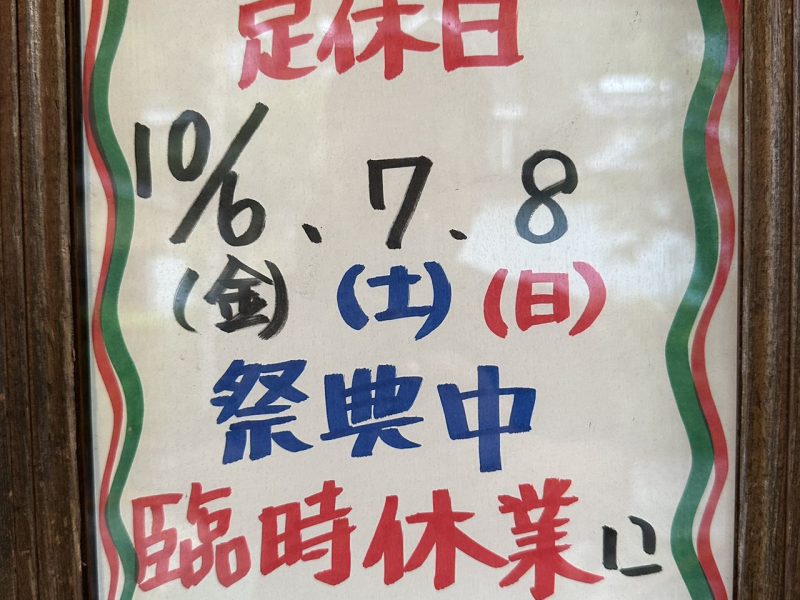 定休日
10/6、7、8
(金)(土)(日)
祭典中
臨時休業に